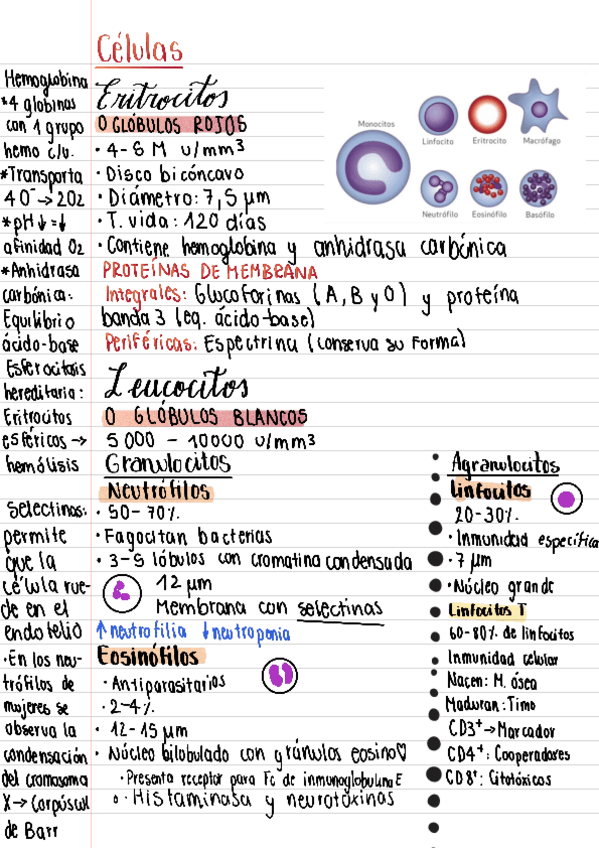 Células
Hemoglobina
*4 globinas
con 1 grupo
hemo c/u.
*Transporta
4O⁻→2O2
*pH↓=↓
afinidad O2
*Anhidrasa
carbónica:
Equilibrio
ácido-base
Esferocitosis
hereditaria:
Eritrocitos
esféricos →
hemólisis
Selectinas:
permite
que la
célula rue-
de en el
endotelio
·En los neu-
trófilos de
mujeres se
observa la
condensación
del cromosoma
X→Corpúscul
de Barr
Eritrocitos
O GLÓBULOS ROJOS
· 4-6 M u/mm3
· Disco bicóncavo
· Diámetro: 7,5 µm
· T. vida: 120 días
· Contiene hemoglobina y anhidrasa carbónica
PROTEÍNAS DE MEMBRANA
Integrales: Glucoforinas (A, B y O) y proteína
banda 3 (eq. ácido-base)
Periféricas: Espectrina (conserva su forma)
Monocitos
Linfocito
Eritrocito
Macrófago
Neutrófilo
Eosinófilo
Basófilo
Leucocitos
O GLÓBULOS BLANCOS
5 000 - 10000 u/mm3
Granulocitos
Neutrófilos
· 50-70%
· Fagocitan bacterias
· 3-5 lóbulos con cromatina condensada
12 µm
Membrana con selectinas
↑neutrofilia ↓neutropenia
Eosinófilos
· Antiparasitarios
· 2-4%
· 12-15 µm
· Núcleo bilobulado con gránulos eosino♡
· Presenta receptor para Fc de inmunoglobulina E
· Histaminasa y neurotoxinas
Agranulocitos
Linfocitos
20-30%
· Inmunidad específica
· 7 µm
· Núcleo grande
Linfocitos T
60-80% de linfocitos
Inmunidad celular
Nacen: M. ósea
Maduran: Timo
CD3⁺→Marcador
CD4⁺: Cooperadores
CD8⁺: Citotóxicos